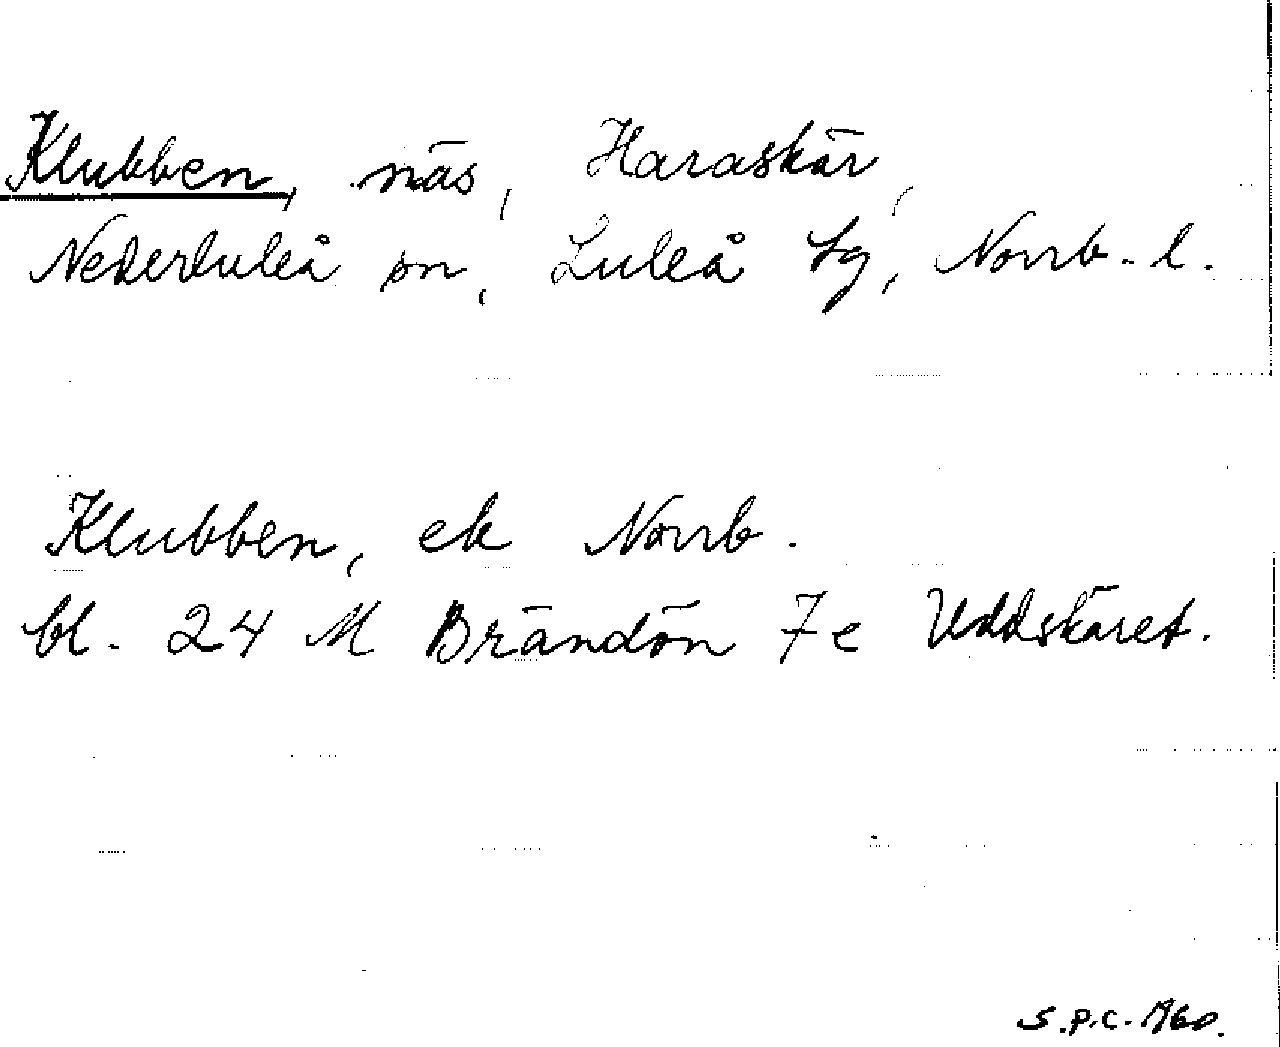 Klubben, näs, Haraskär,
Nederluleå sn, Luleå tg, Norrb. l.
Klubben, ek Norrb.
bl. 24 M Brändön 7e Uddskäret.
S.P.C. 1960.